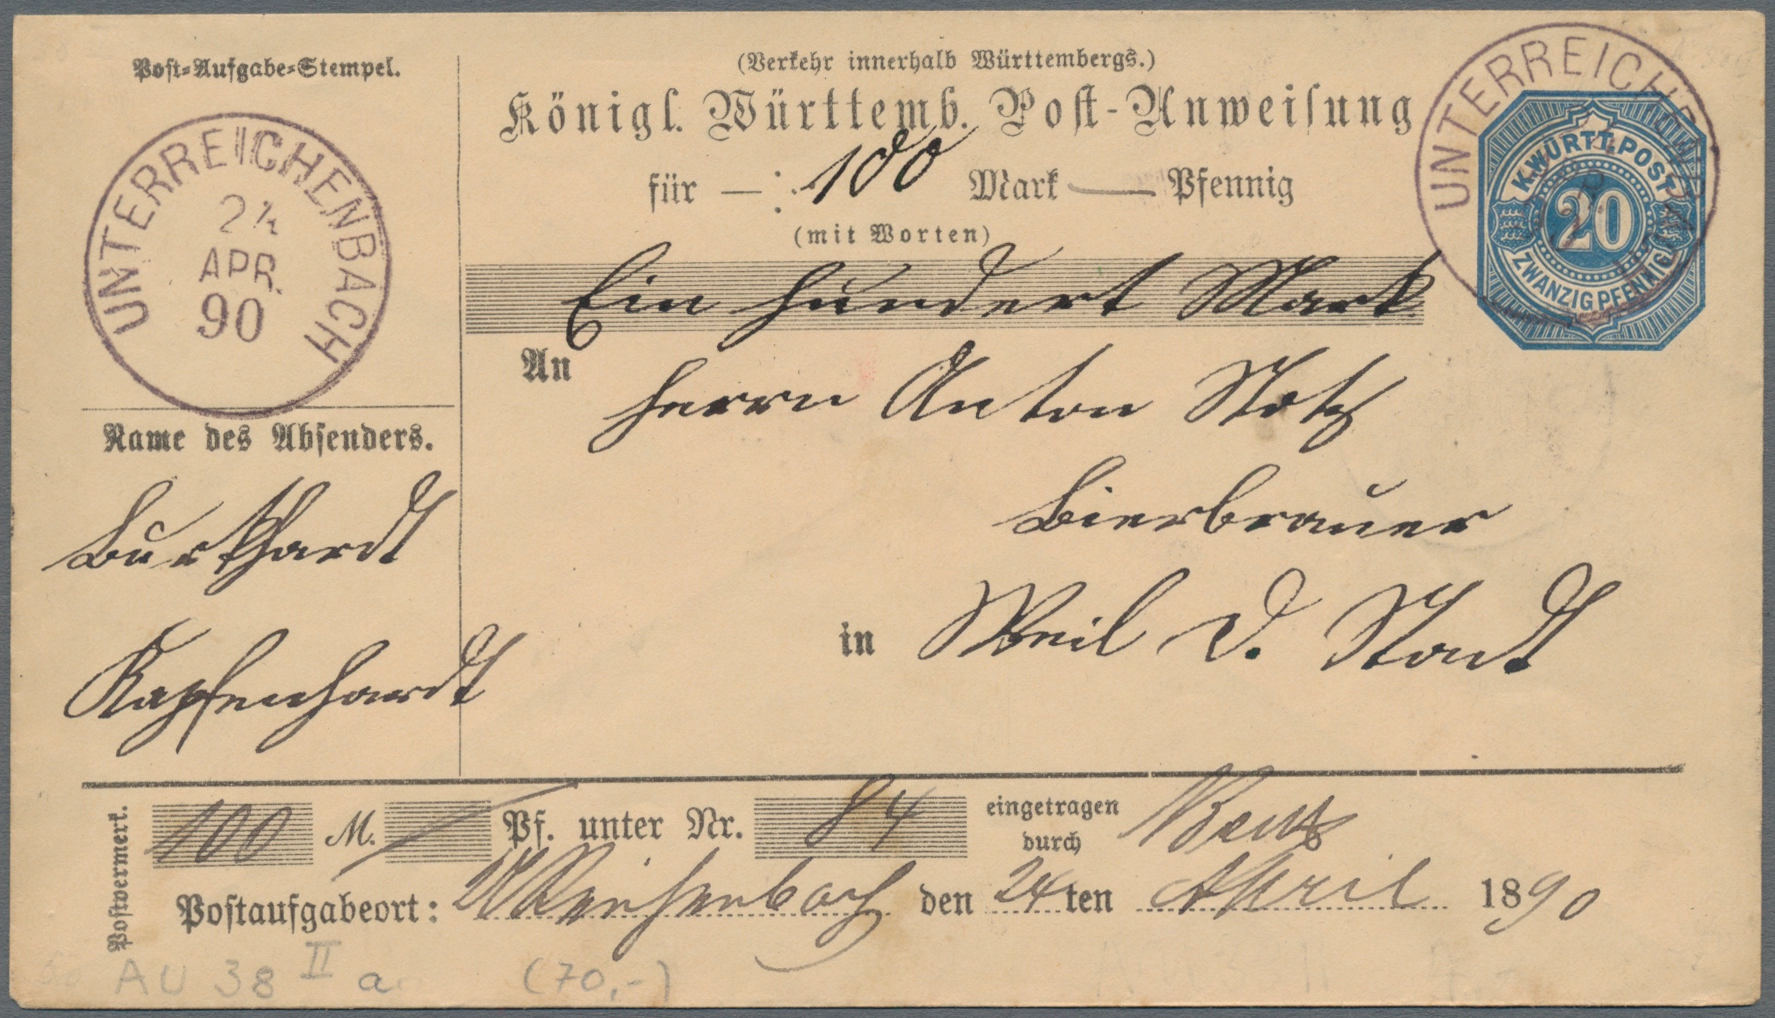 Post-Aufgabe-Stempel.
UNTERREICHENBACH
24
APR.
90
Name des Absenders.
Burkhardt
Kapfenhardt
(Verkehr innerhalb Württembergs.)
Königl. Württemb. Post-Anweisung
für —: 100 Mark — Pfennig
(mit Worten)
Ein hundert Mark
An
Herrn Anton Notz
Bierbrauer
in Weil d. Stadt
UNTERREICHENBACH
K. WÜRTT. POST
20
ZWANZIG PFENNIG
Postvermerk.
100 M. — Pf. unter Nr. 84 eingetragen durch
Postaufgabeort: U'Reichenbach den 24ten April 1890
AU 38 II a (70,-)